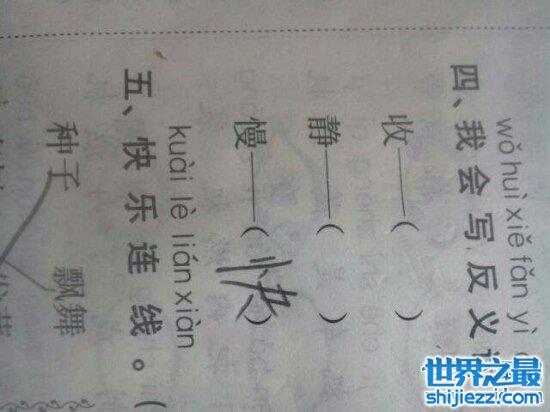 wǒ huì xiě fǎn yì
四、我会写反义
收——（ ）
静——（ ）
慢——（快）
kuài lè lián xiàn
五、快乐连线。（
种子 飘舞
世界之最
shijiezzl.com